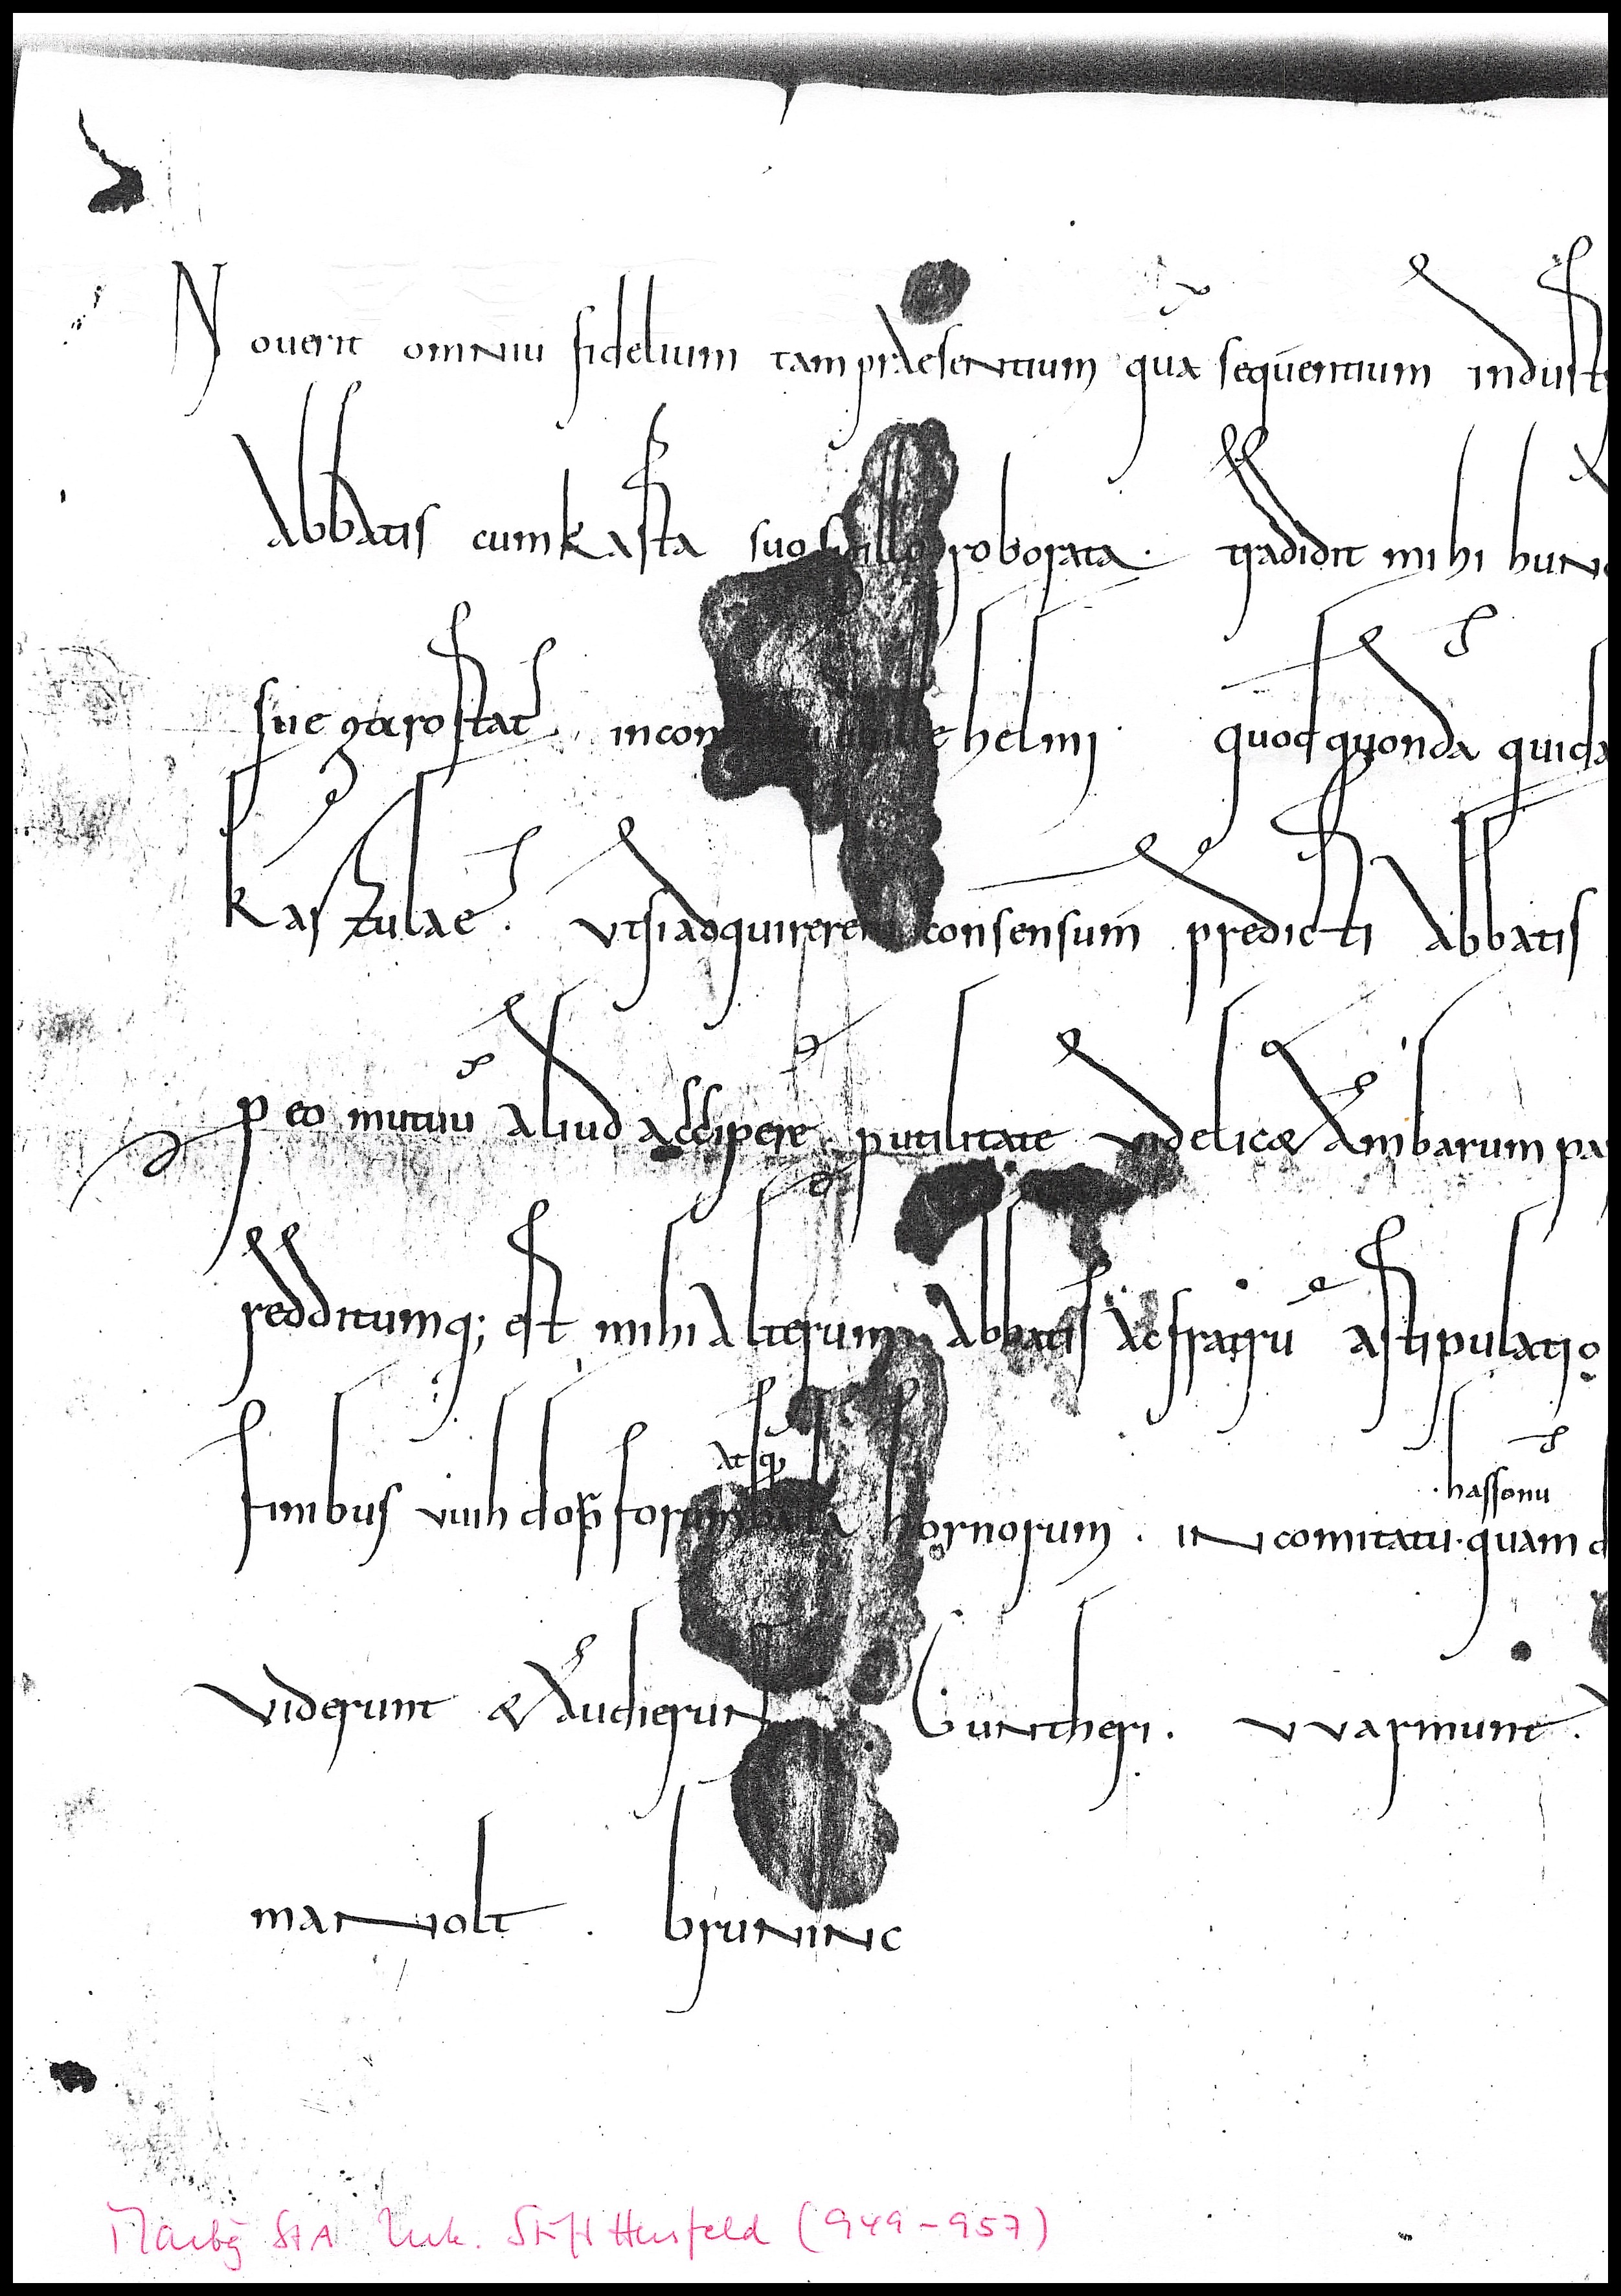 Noverit omniū fidelium tam praesentium quā sequentium indust
Abbatis cum kasta suo sigillo roborata. tradidit mihi hunc
sue incom helmi. quod quondā quidā
ut si adquirerem consensum predicti Abbatis
p eo mutuū aliud accipere. p utilitate videlicet Ambarum pa
redditumq; est mihi Alterum Abbatis Ac fratrū astipulatio
atq; hassonū
finibus hornorum. in comitatu. quam d
viderunt & Audierunt Guntheri. vvarmunt.
manolt. bruninc
Marbg StA Urk. Stift Hersfeld (949-957)